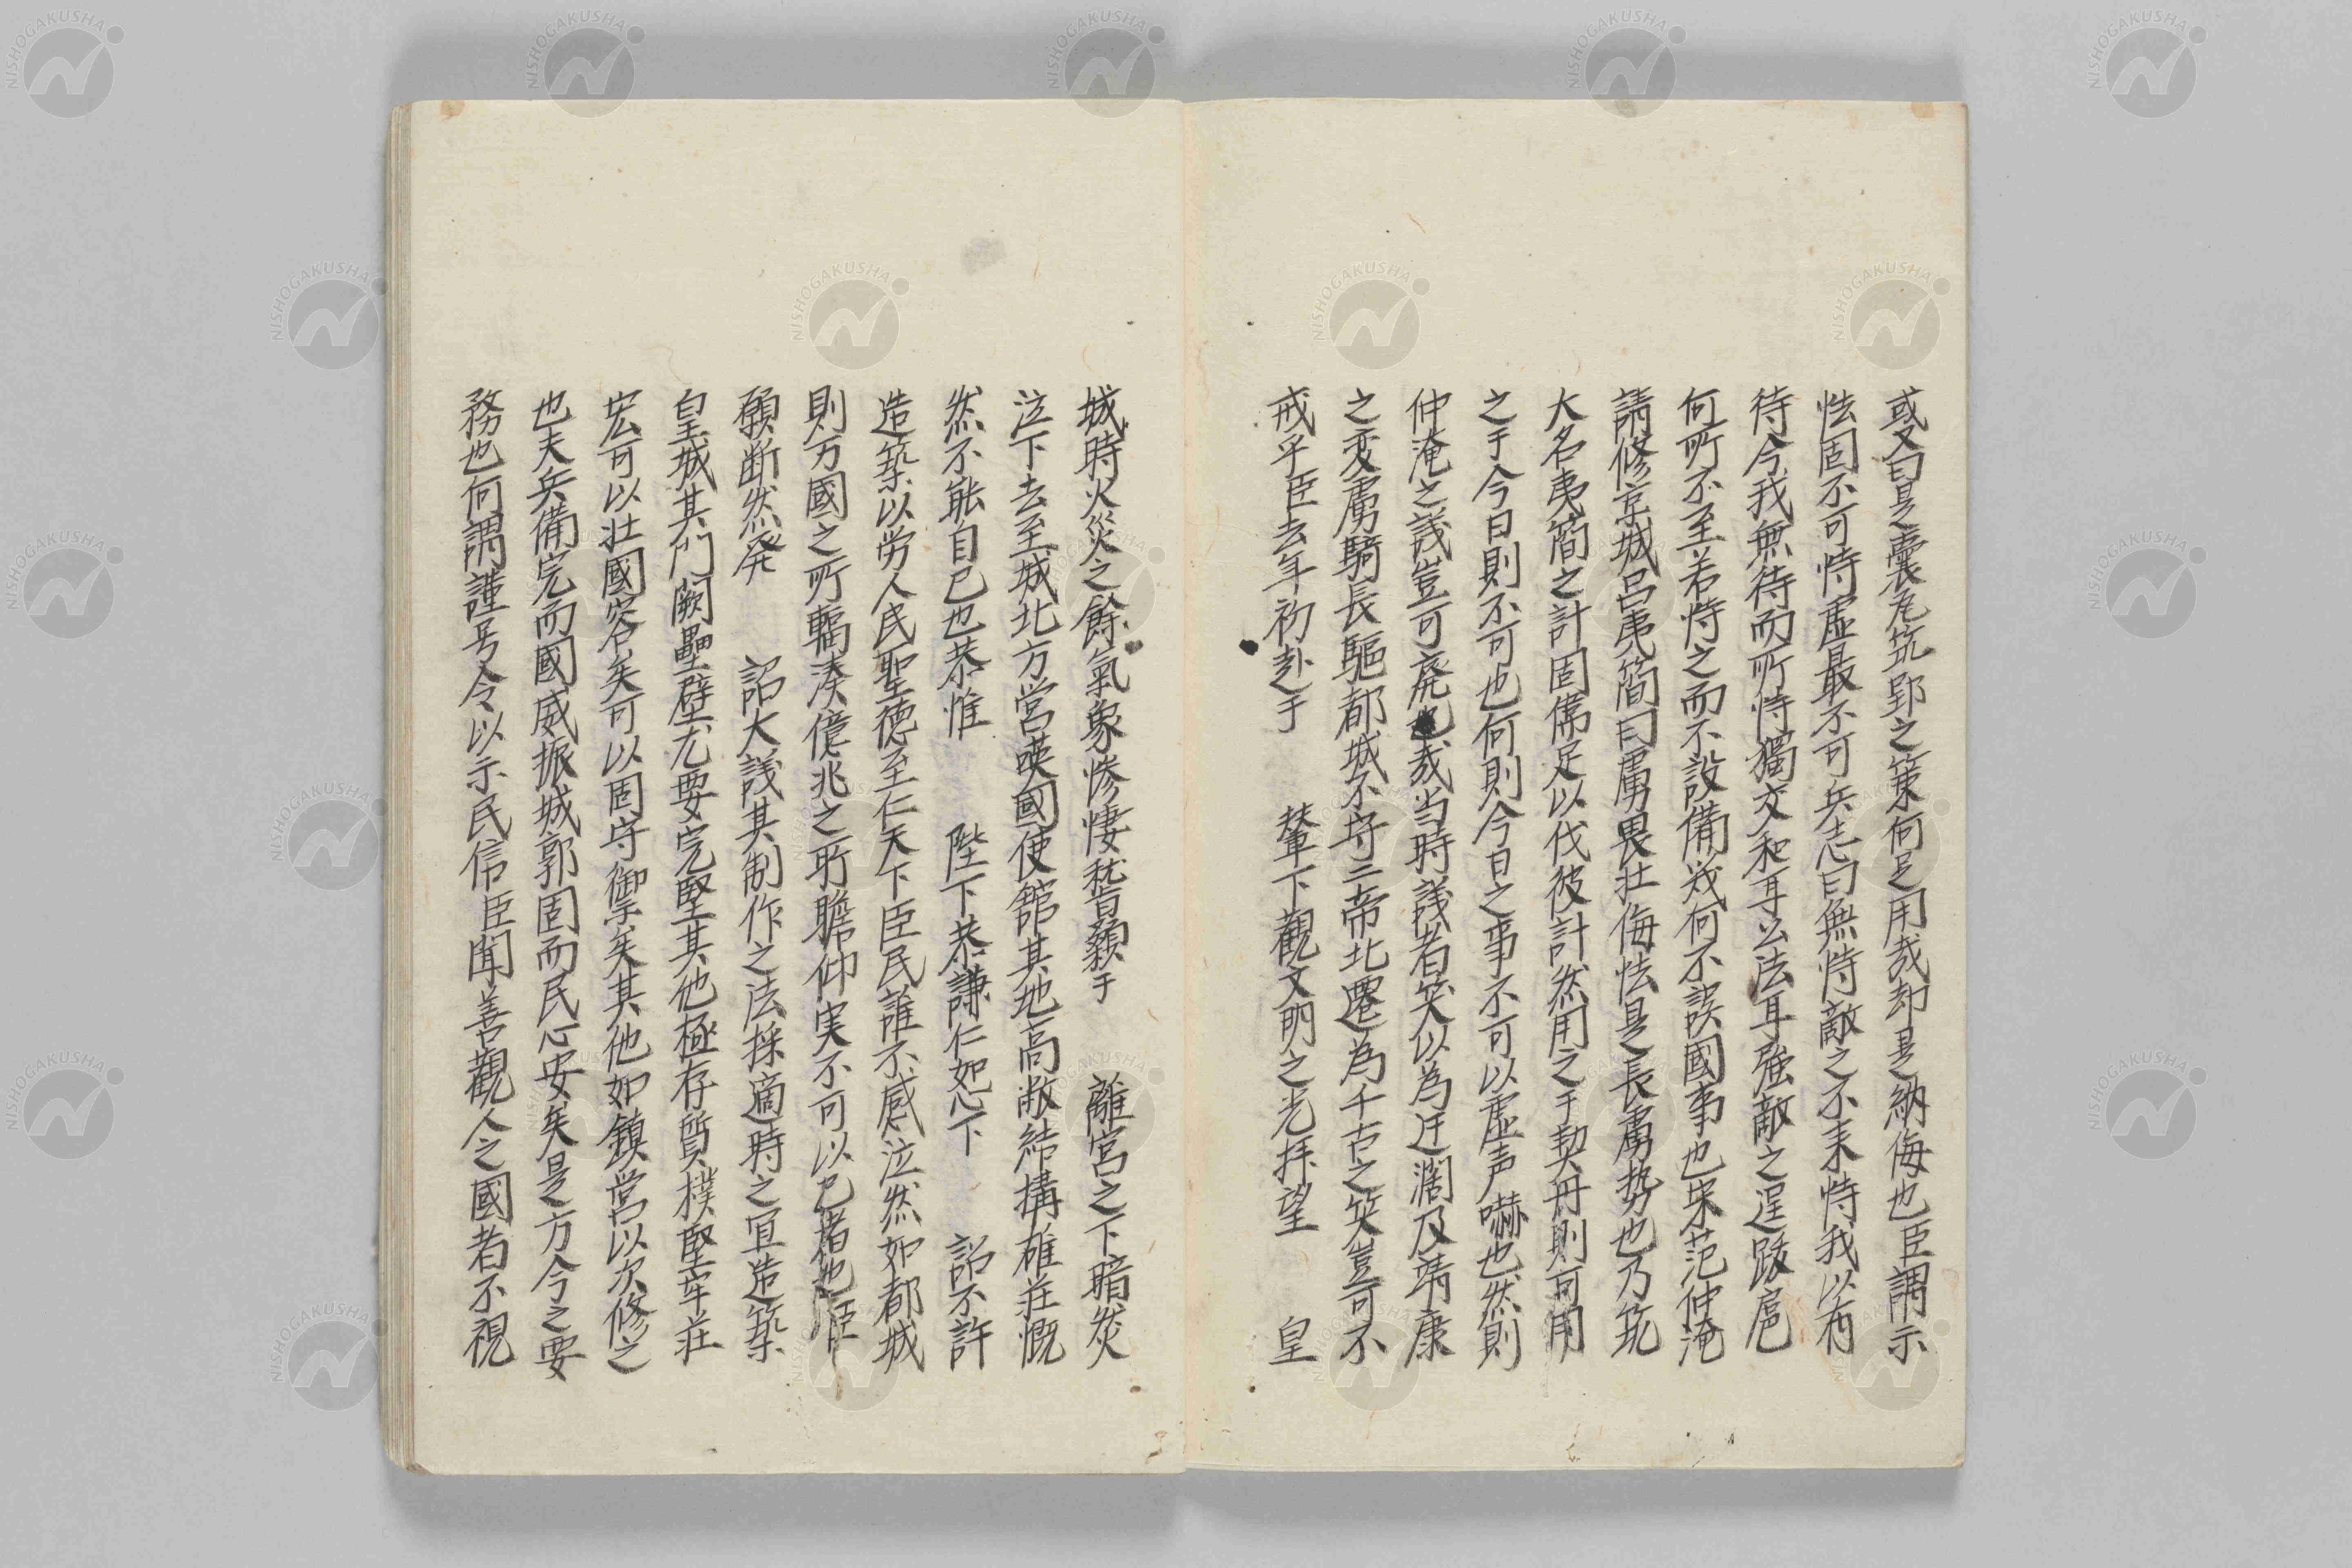 或又曰是囊瓦筑郢之策何足用哉却是納侮也臣謂示
怯固不可恃虚最不可兵志曰無恃敵之不来恃我以有
待今我無待而所恃獨交和耳公法耳強敵之逞跋扈
何所不至若恃之而不設備幾何不誤國事也宋范仲淹
請修京城呂夷簡曰虜畏壮侮怯是長虜勢也乃筑
大名夷簡之計固儁足以伐彼計然用之于契丹則可用
之于今日則不可也何則今日之事不可以虚声嚇也然則
仲淹之議豈可廃哉当時議者笑以為迂濶及靖康
之変虜騎長驅都城不守二帝北遷為千古之笑豈可不
戒乎臣去年初赴于 輦下觀文明之光拝望 皇
城時火災之餘氣象惨悽稽顙于 離宮之下暗然
泣下去至城北方営英國使館其地高敞結構雄荘慨
然不能自已也恭惟 陛下恭謙仁恕下 詔不許
造築以労人民聖徳至仁天下臣民誰不感泣然如都城
則万國之所輻湊億兆之所瞻仰実不可以已者也臣
願断然発 詔大議其制作之法採適時之宜造築
皇城其門闕壘壁尤要完堅其他極存質樸堅牢荘
宏可以壮國容矣可以固守禦矣其他如鎮営以次修之
也夫兵備完而國威振城郭固而民心安矣是方今之要
務也何謂謹号令以示民信臣聞善觀人之國者不視
NISHOGAKUSHA